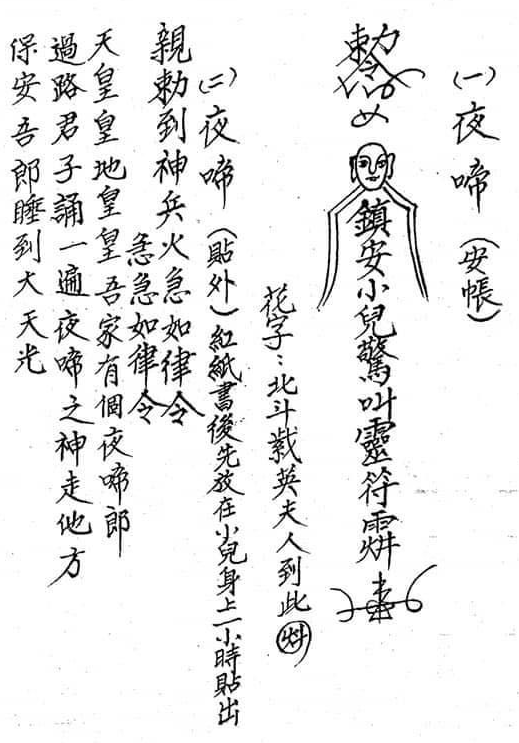 (一)夜啼(安帳)
勅令
鎮安小兒驚叫靈符
花字:北斗紫英夫人到此
(二)夜啼(貼外)紅紙書後先放在小兒身上一小時貼出
親勅到神兵火急如律令
急急如律令
天皇皇地皇皇吾家有個夜啼郎
過路君子誦一遍夜啼之神走他方
保安吾郎睡到大天光